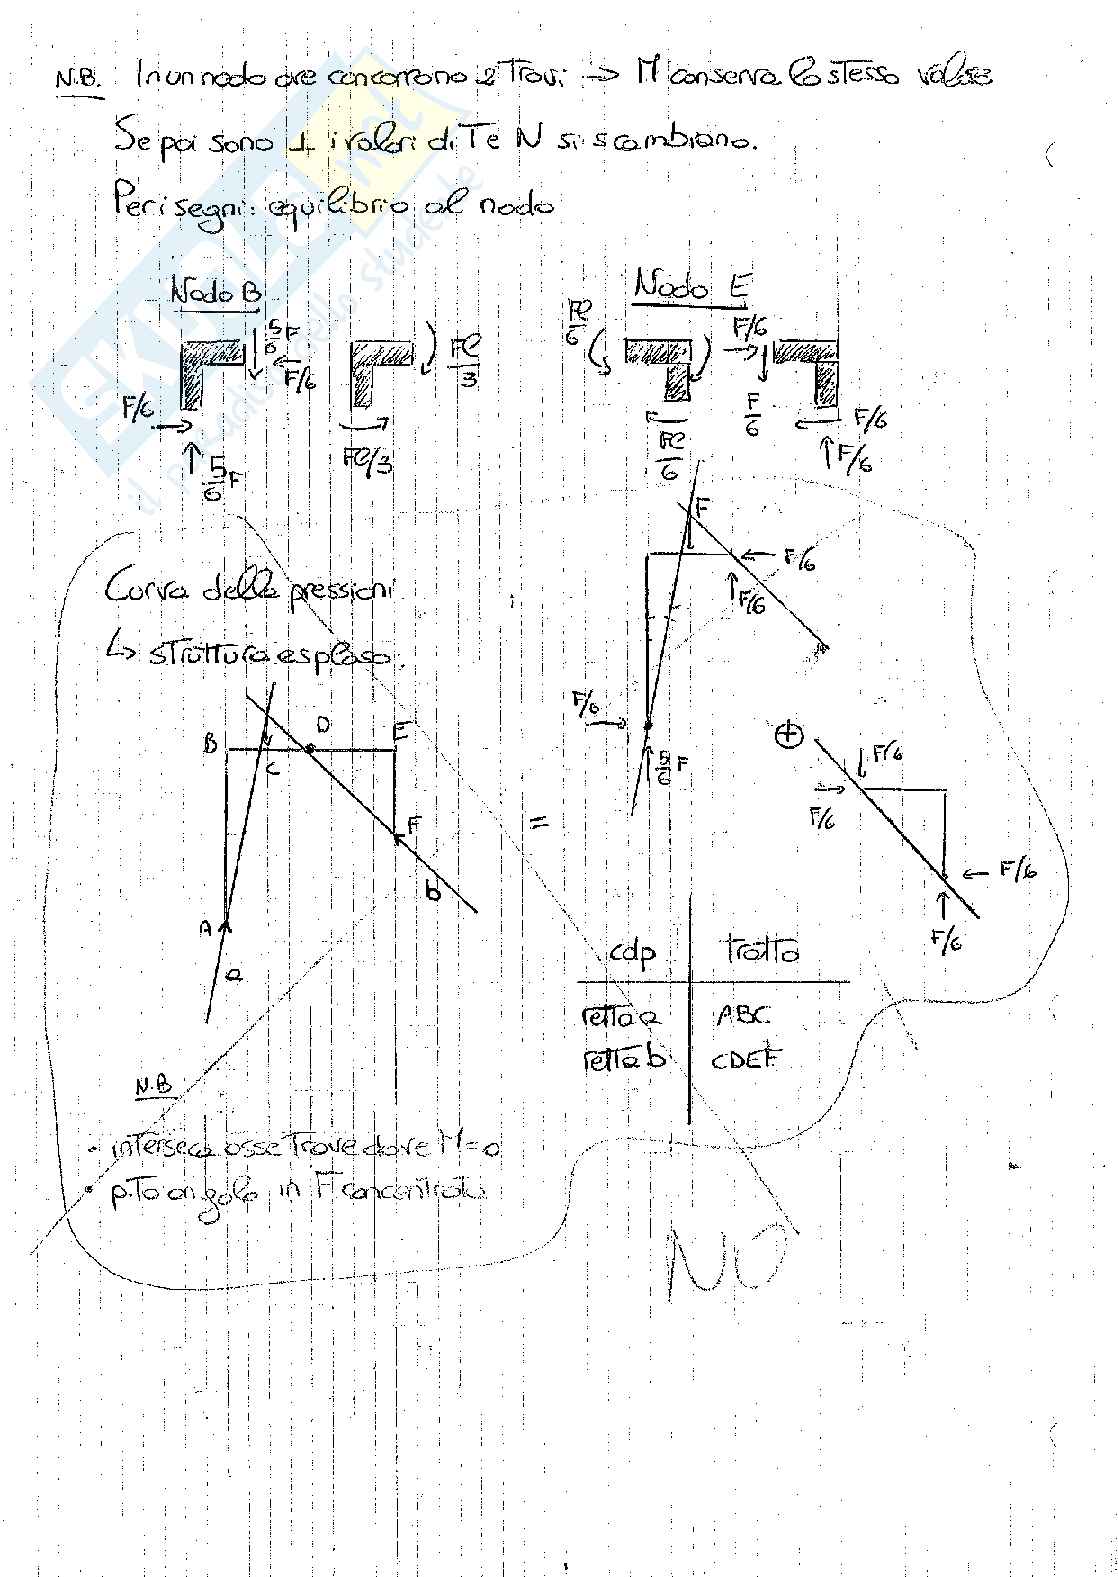 N.B. In un nodo ove concorrono 2 travi → M conserva lo stesso valore
Se poi sono ⊥ i valori di T e N si scambiano.
Per i segni: equilibrio al nodo
Nodo B
Nodo E
5/6 F
F/6
F/6
5/6 F
Fl/3
Fl/3
Fl/6
Fl/6
F/6
F/6
F/6
F/6
Curva delle pressioni
↳ struttura esplosa.
B
C
D
E
F
A
a
b
=
F
F/6
F/6
F/6
5/6 F
⊕
F/6
F/6
F/6
F/6
cdp tratto
retta a ABC
retta b CDEF
N.B
• interseca asse trave dove M=0
• p.to angolo in F concentrata
NO